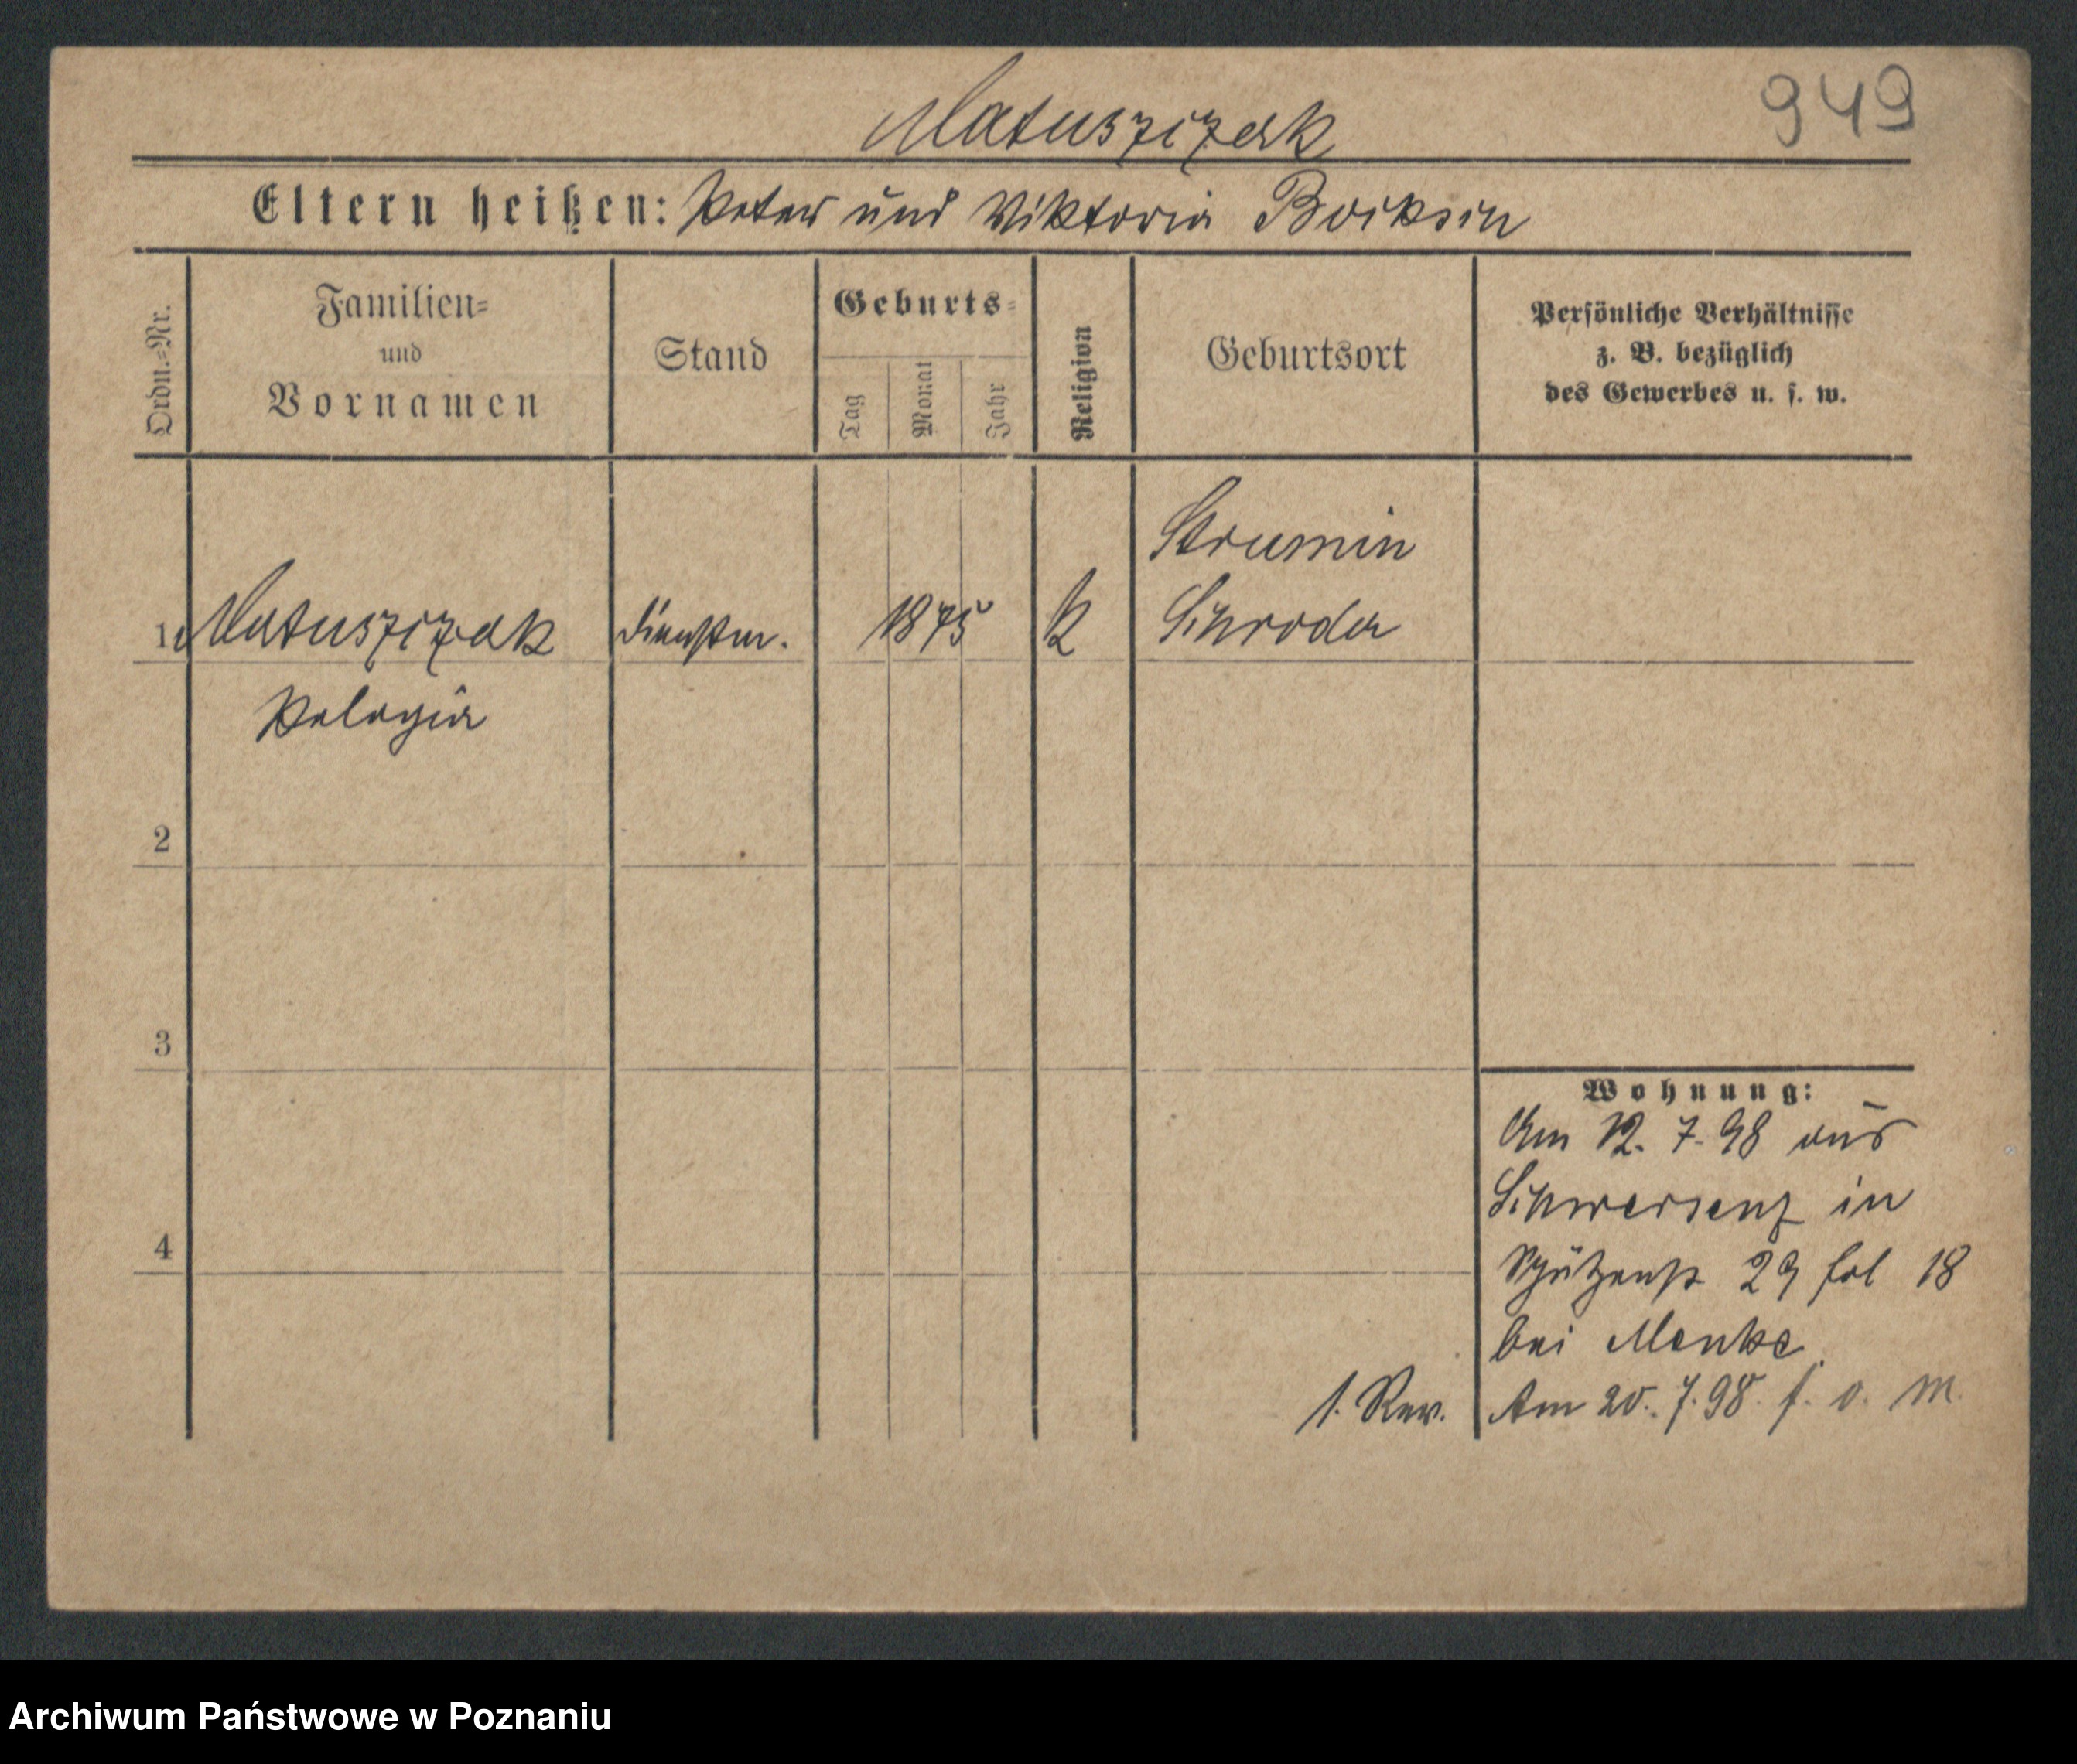 949
Matuszczak
Eltern heißen: Peter und Viktoria Boiksin
Ordn.-Nr.
Familien-
und
Vornamen
Stand
Geburts-
Tag
Monat
Jahr
Religion
Geburtsort
Persönliche Verhältnisse
z. B. bezüglich
des Gewerbes u. s. w.
Strumin
1 Matuszczak Dienstm. 1875 k Schroda
Pelagia
2
3
4
Wohnung:
Am 12. 7. 98 aus
Schwersenz in
Schützenstr 29 fol 18
bei Menke
1. Rev. Am 20. 7. 98. f. o. M.
Archiwum Państwowe w Poznaniu